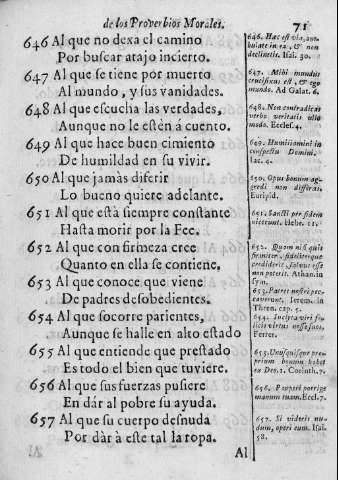 de los Proverbios Morales. 71
646 Al que no dexa el camino
Por buscar atajo incierto.
647 Al que se tiene por muerto
Al mundo, y sus vanidades.
648 Al que escucha las verdades,
Aunque no le estèn á cuento.
649 Al que hace buen cimiento
De humildad en su vivir.
650 Al que jamàs diferir
Lo bueno quiere adelante.
651 Al que està siempre constante
Hasta morir por la Fee.
652 Al que con firmeza cree
Quanto en ella se contiene.
653 Al que conoce que viene
De padres desobedientes.
654 Al que socorre parientes,
Aunque se halle en alto estado
655 Al que entiende que prestado
Es todo el bien que tuviere.
656 Al que sus fuerzas pusiere
En dár al pobre su ayuda.
657 Al que su cuerpo desnuda
Por dàr à este tal la ropa.
Al
646. Hæc est via, am-
bulate in ea, & non
declinetis. Isai. 30.
647. Mihi mundus
crucifixus est, & ego
mundo. Ad Galat. 6.
648. Non contradicas
verbo veritatis ullo
modo. Eccles. 4.
649. Humiliamini in
conspectu Domini.
Iac. 4.
650. Opus bonum ag-
gredi non differas.
Euripid.
651. Sancti per fidem
vicerunt. Hebr. 11.
652. Quam nisi quis
firmiter, fideliterque
crediderit, salvus esse
non poterit. Athan. in
sym.
653. Patres nostri pec-
caverunt. Jerem. in
Thren. cap. 5.
654.
Ferrer.
655. Unusquisque pro-
prium donum habet
ex Deo. 1. Corinth. 7.
656. Pauperi porrige
manum tuam. Eccl. 7.
657. Si videris nu-
dum, operi eum. Isai.
58.